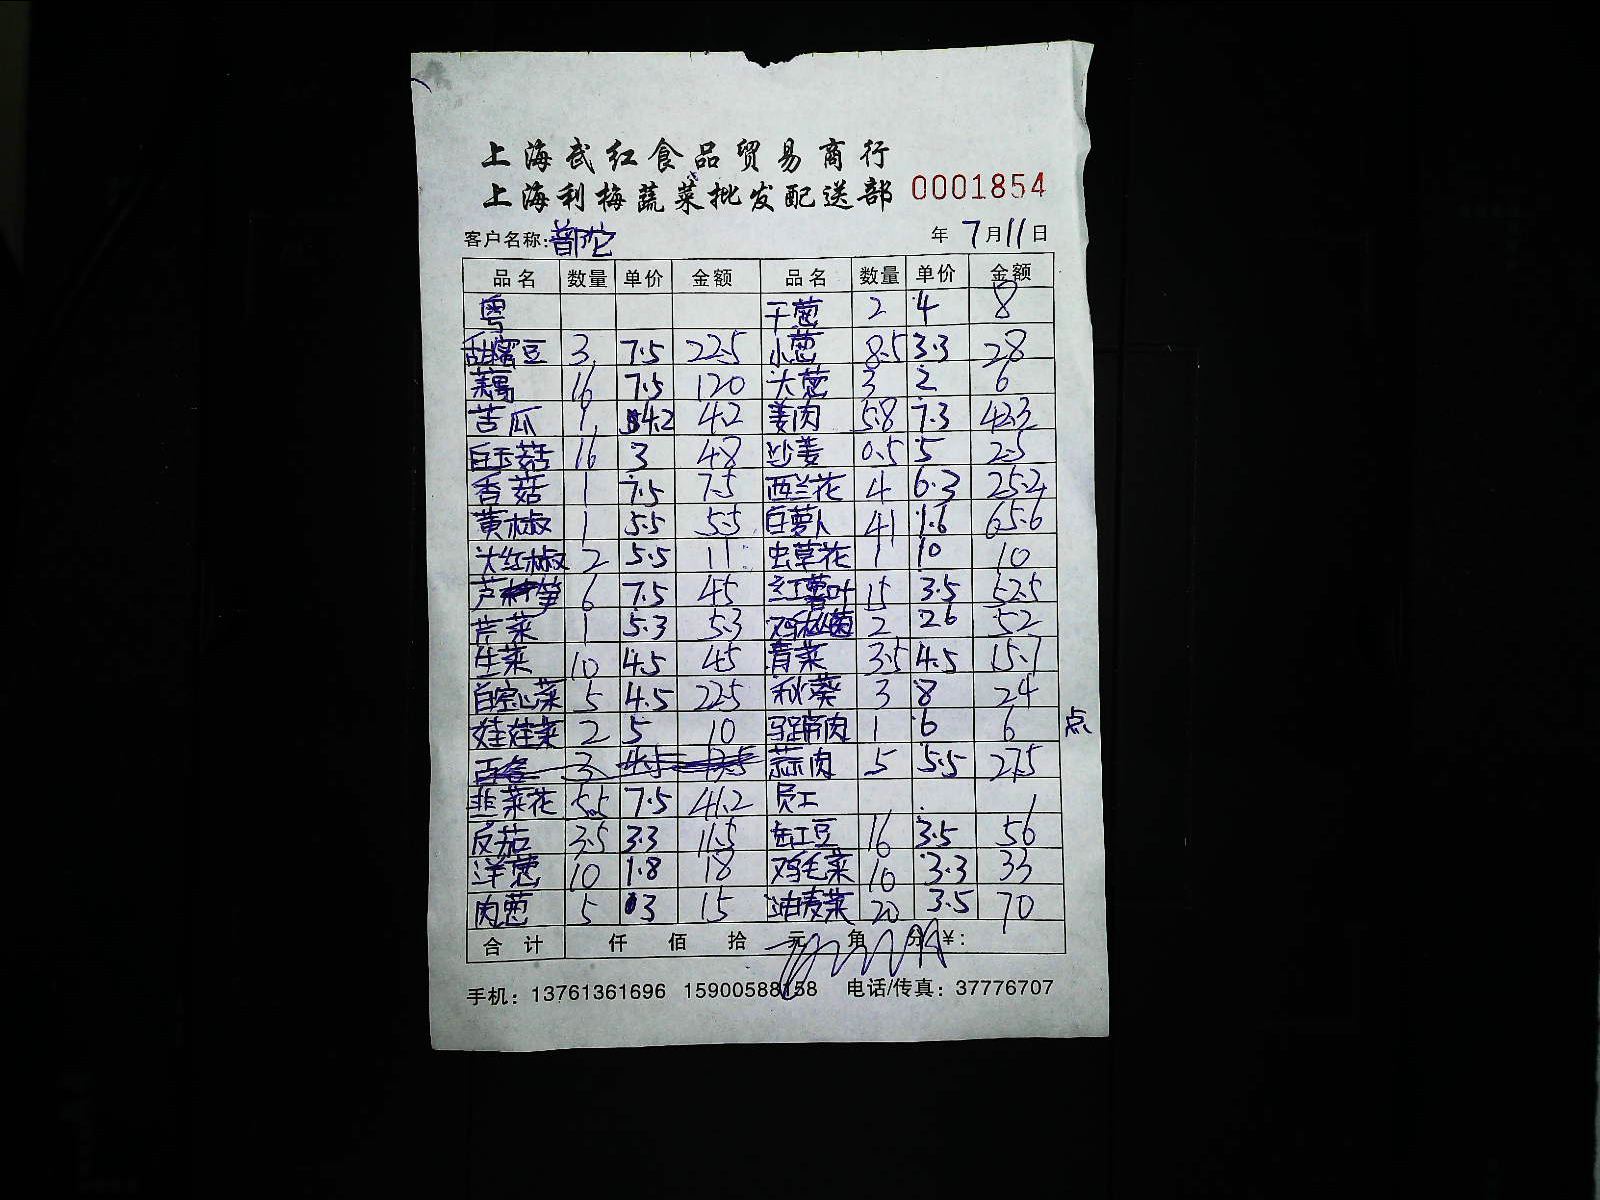 上海武红食品贸易商行
上海利梅蔬菜批发配送部 0001854
客户名称:普陀 年 7月11日
品名 数量 单价 金额 品名 数量 单价 金额
粤 干葱 2 4 8
甜蜜豆 3 7.5 22.5 小葱 8.5 3.3 28
藕 16 7.5 120 大葱 3 2 6
苦瓜 1 4.2 4.2 姜肉 5.8 7.3 42.3
白玉菇 16 3 48 沙姜 0.5 5 2.5
香菇 1 7.5 7.5 西兰花 4 6.3 25.2
黄椒 1 5.5 5.5 白萝卜 41 1.6 65.6
大红椒 2 5.5 11 虫草花 1 10 10
芦笋 6 7.5 45 红薯叶 15 3.5 52.5
芹菜 1 5.3 5.3 鸡枞菌 2 26 52
生菜 10 4.5 45 青菜 3.5 4.5 15.7
白空心菜 5 4.5 22.5 秋葵 3 8 24
娃娃菜 2 5 10 马蹄肉 1 6 6 点
百合 3 4.5 13.5 蒜肉 5 5.5 27.5
韭菜花 5.5 7.5 41.2 员工
反茄 3.5 3.3 11.5 缸豆 16 3.5 56
洋葱 10 1.8 18 鸡毛菜 10 3.3 33
肉葱 5 3 15 油麦菜 20 3.5 70
合计 仟 佰 拾 元 角 分 ¥:
手机: 13761361696 15900588158 电话/传真: 37776707